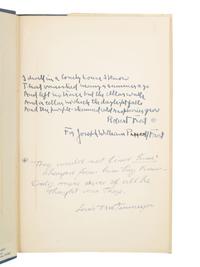 I dwell in a lonely house I know
That vanished many a summer ago
And left no trace but the cellar walls
And a cellar in which the daylight falls
And the purple-stemmed wild raspberries grow
Robert Frost
For Joseph William
"They would not find me
changed from him they knew—
Only more sure of all
thought was true.
Louis Untermeyer